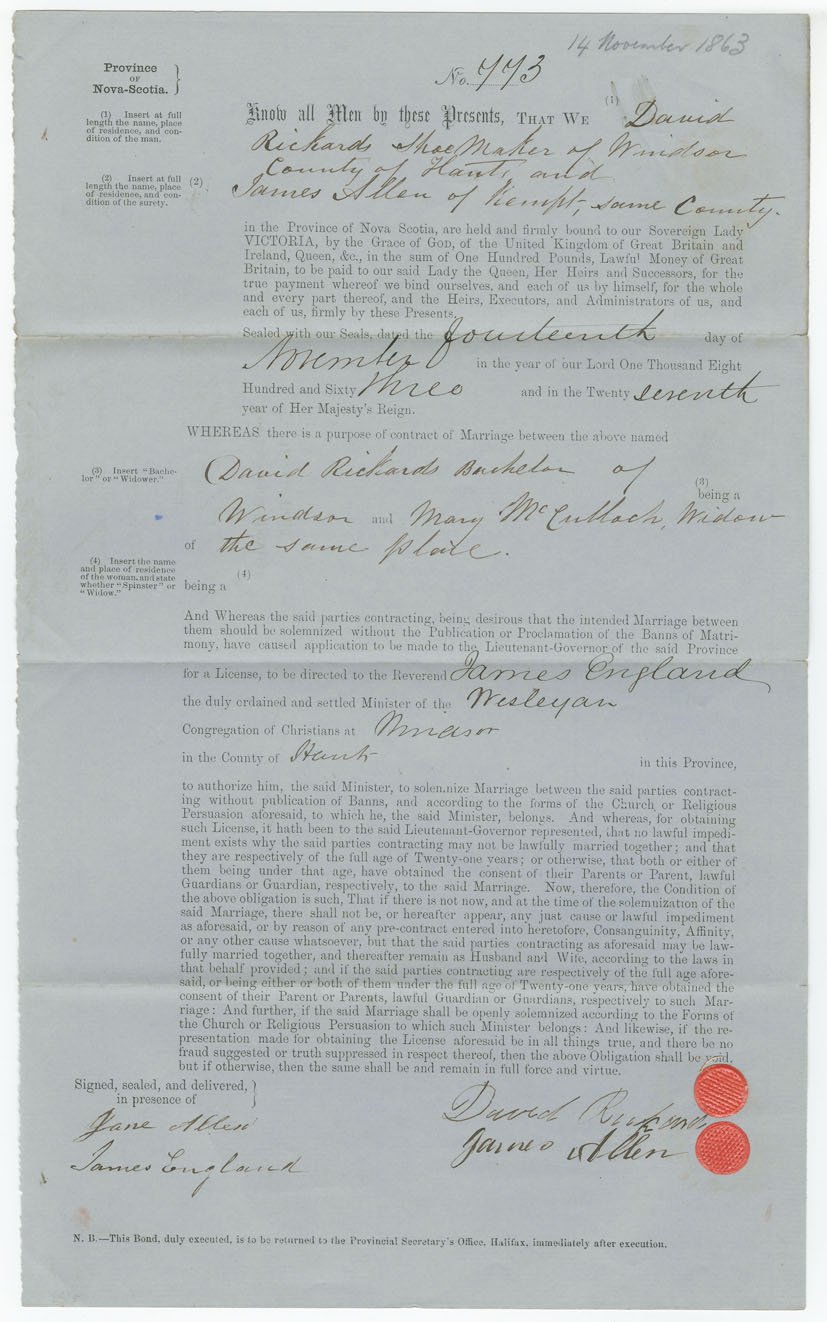 14 November 1863
Province
OF
Nova-Scotia.
No. 773
(1) Insert at full
length the name, place
of residence, and con-
dition of the man.
Know all Men by these Presents, THAT WE (1) David
Rickards Shoe Maker of Windsor
County of Hants, and
(2) Insert at full
length the name, place
of residence, and con-
dition of the surety.
(2) James Allen of Kempt, same County.
in the Province of Nova Scotia, are held and firmly bound to our Sovereign Lady
VICTORIA, by the Grace of God, of the United Kingdom of Great Britain and
Ireland, Queen, &c., in the sum of One Hundred Pounds, Lawful Money of Great
Britain, to be paid to our said Lady the Queen, Her Heirs and Successors, for the
true payment whereof we bind ourselves, and each of us by himself, for the whole
and every part thereof, and the Heirs, Executors, and Administrators of us, and
each of us, firmly by these Presents.
Sealed with our Seals, dated the fourteenth day of
November in the year of our Lord One Thousand Eight
Hundred and Sixty three and in the Twenty seventh
year of Her Majesty's Reign.
WHEREAS there is a purpose of contract of Marriage between the above named
(3) Insert "Bache-
lor" or "Widower."
David Rickards Bachelor of
(3)
being a
Windsor and Mary McCulloch, Widow
of the same place.
(4) Insert the name
and place of residence
of the woman, and state
whether "Spinster" or
"Widow."
(4)
being a
And Whereas the said parties contracting, being desirous that the intended Marriage between
them should be solemnized without the Publication or Proclamation of the Banns of Matri-
mony, have caused application to be made to the Lieutenant-Governor of the said Province
for a License, to be directed to the Reverend James England
the duly ordained and settled Minister of the Wesleyan
Congregation of Christians at Windsor
in the County of Hants in this Province,
to authorize him, the said Minister, to solemnize Marriage between the said parties contract-
ing without publication of Banns, and according to the forms of the Church or Religious
Persuasion aforesaid, to which he, the said Minister, belongs. And whereas, for obtaining
such License, it hath been to the said Lieutenant-Governor represented, that no lawful impedi-
ment exists why the said parties contracting may not be lawfully married together; and that
they are respectively of the full age of Twenty-one years; or otherwise, that both or either of
them being under that age, have obtained the consent of their Parents or Parent, lawful
Guardians or Guardian, respectively, to the said Marriage. Now, therefore, the Condition of
the above obligation is such, That if there is not now, and at the time of the solemnization of the
said Marriage, there shall not be, or hereafter appear, any just cause or lawful impediment
as aforesaid, or by reason of any pre-contract entered into heretofore, Consanguinity, Affinity,
or any other cause whatsoever, but that the said parties contracting as aforesaid may be law-
fully married together, and thereafter remain as Husband and Wife, according to the laws in
that behalf provided; and if the said parties contracting are respectively of the full age afore-
said, or being either or both of them under the full age of Twenty-one years, have obtained the
consent of their Parent or Parents, lawful Guardian or Guardians, respectively to such Mar-
riage: And further, if the said Marriage shall be openly solemnized according to the Forms of
the Church or Religious Persuasion to which such Minister belongs: And likewise, if the re-
presentation made for obtaining the License aforesaid be in all things true, and there be no
fraud suggested or truth suppressed in respect thereof, then the above Obligation shall be void,
but if otherwise, then the same shall be and remain in full force and virtue.
Signed, sealed, and delivered,
in presence of
Jane Allen
James England
David Rickards
James Allen
N. B.—This Bond, duly executed, is to be returned to the Provincial Secretary's Office, Halifax, immediately after execution.